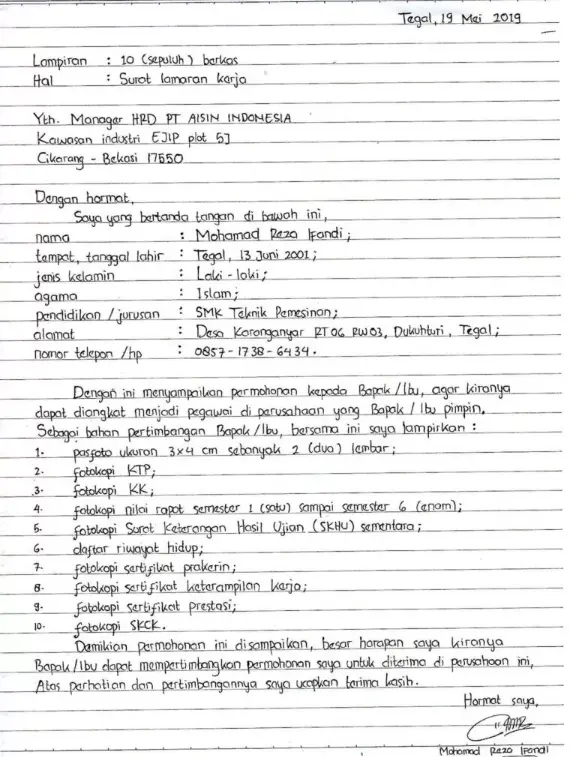 Tegal, 19 Mei 2019
Lampiran : 10 (sepuluh) berkas
Hal : Surat lamaran kerja
Yth. Manager HRD PT AISIN INDONESIA
Kawasan industri EJIP plot 5J
Cikarang - Bekasi 17550
Dengan hormat,
Saya yang bertanda tangan di bawah ini,
nama : Mohamad Reza Ifandi;
tempat, tanggal lahir : Tegal, 13 Juni 2001;
jenis kelamin : Laki-laki;
agama : Islam;
pendidikan / jurusan : SMK Teknik Pemesinan;
alamat : Desa Karanganyar RT06 RW03, Dukuhturi, Tegal;
nomor telepon /hp : 0857-1738-6434.
Dengan ini menyampaikan permohonan kepada Bapak/Ibu, agar kiranya
dapat diangkat menjadi pegawai di perusahaan yang Bapak / Ibu pimpin.
Sebagai bahan pertimbangan Bapak/Ibu, bersama ini saya lampirkan :
1. pasfoto ukuran 3x4 cm sebanyak 2 (dua) lembar;
2. fotokopi KTP;
3. fotokopi KK;
4. fotokopi nilai rapot semester 1 (satu) sampai semester 6 (enam);
5. fotokopi Surat Keterangan Hasil Ujian (SKHU) sementara;
6. daftar riwayat hidup;
7. fotokopi sertifikat prakerin;
8. fotokopi sertifikat keterampilan kerja;
9. fotokopi sertifikat prestasi;
10. fotokopi SKCK.
Demikian permohonan ini disampaikan, besar harapan saya kiranya
Bapak/Ibu dapat mempertimbangkan permohonan saya untuk diterima di perusahaan ini,
Atas perhatian dan pertimbangannya saya ucapkan terima kasih.
Hormat saya,
Mohamad Reza Ifandi